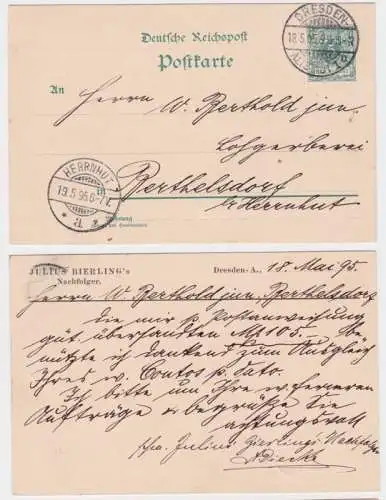 Deutsche Reichspost
Postkarte
DRESDEN-
18.5.95.
ALTSTADT
An
Herrn W. Berthold jun.
Lohgerberei
Berthelsdorf
b/Herrnhut
HERRNHUT
19.5.95
JULIUS BIERLING's
Nachfolger.
Dresden-A., 18. Mai 95.
Herrn W. Berthold jun. Berthelsdorf
die mir p. Postanweisung
güt. übersandten M 105.– be
nützte ich dankend zum Ausgleich
Ihres w. Contos p. Sato.
Ich bitte um Ihre w. ferneren
Aufträge & begrüße Sie
achtungsvoll
Julius Bierlings Nachfolger